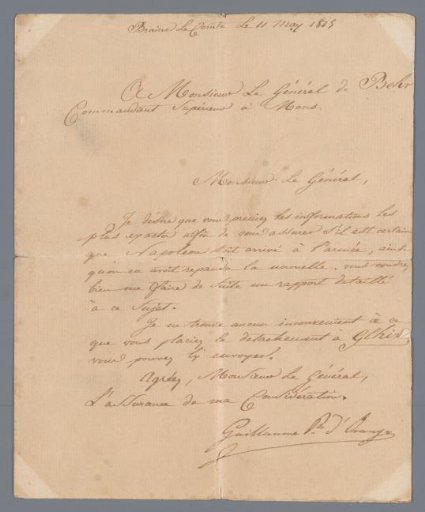 Braine Le Comte le 11 May 1815
A Monsieur Le Général de Behr
Commandant Supérieur à Mons.
Monsieur Le Général,
Je désire que vous preniez les informations les
plus exactes afin de vous assurer s'il est certain
que Napoléon soit arrivé à l'armée, ainsi
qu'on en avoit repandu la nouvelle. vous voudrez
bien me faire de suite un rapport détaillé
à ce Sujet.
Je ne trouve aucun inconvenient à ce
que vous placiez le detachement à Ghlin,
vous pouvez l'y envoyer.
Agréez, Monsieur Le Général,
L'assurance de ma Considération.
Guillaume Pce d'Orange